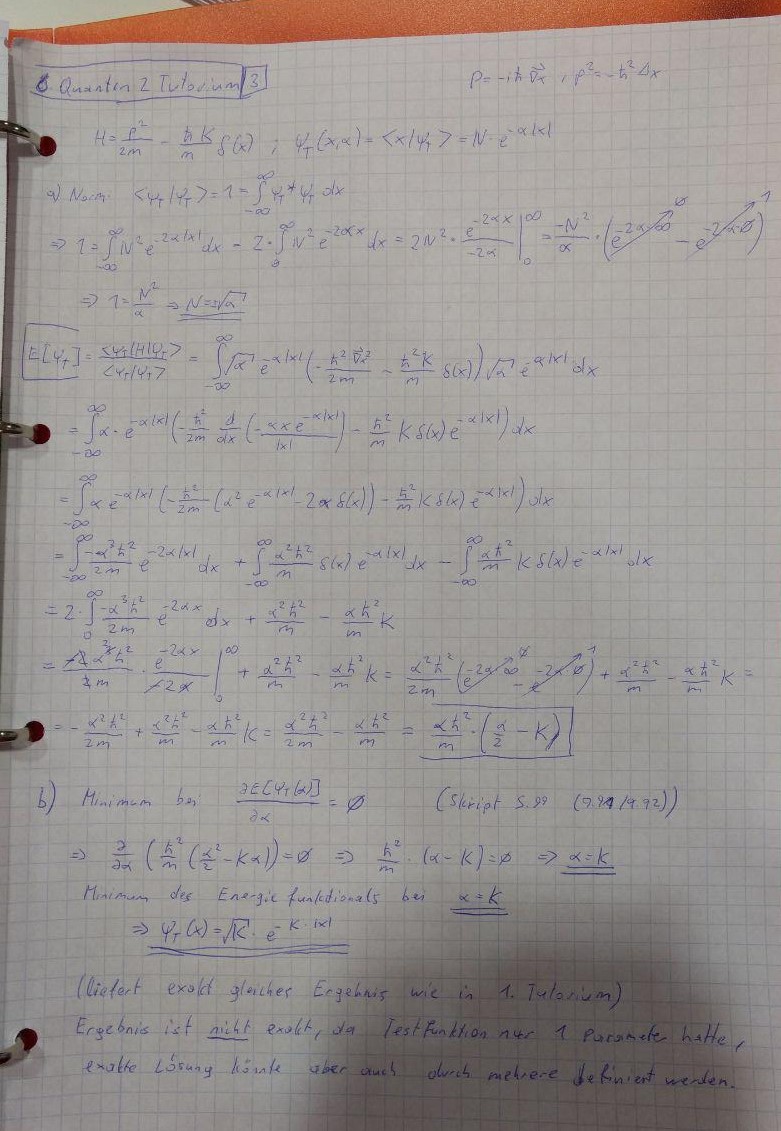 6. Quanten 2 Tutorium 3
P=-iħ∇⃗x, p²=-ħ²Δx
H = p²/2m - ħK/m δ(x) ; ψ_T(x,α) = <x|ψ_T> = N·e^{-α|x|}
a) Norm: <ψ_T|ψ_T> = 1 = ∫_{-∞}^{∞} ψ_T* ψ_T dx
⇒ 1 = ∫_{-∞}^{∞} N² e^{-2α|x|} dx = 2·∫_0^∞ N² e^{-2αx} dx = 2N² · e^{-2αx}/-2α |_0^∞ = -N²/α · (e^{-2α·∞} - e^{-2·α·0}) 0 1
⇒ 1 = N²/α ⇒ N=±√α
E[ψ_T] = <ψ_T|H|ψ_T>/<ψ_T|ψ_T> = ∫_{-∞}^{∞} √α e^{-α|x|} (-ħ²∇⃗x²/2m - ħ²K/m δ(x)) √α e^{-α|x|} dx
= ∫_{-∞}^{∞} α·e^{-α|x|} (-ħ²/2m d/dx (-αx e^{-α|x|}/|x|) - ħ²/m K δ(x) e^{-α|x|}) dx
= ∫_{-∞}^{∞} α e^{-α|x|} (-ħ²/2m (α² e^{-α|x|} - 2α δ(x)) - ħ²/m K δ(x) e^{-α|x|}) dx
= ∫_{-∞}^{∞} -α³ħ²/2m e^{-2α|x|} dx + ∫_{-∞}^{∞} α²ħ²/m δ(x) e^{-α|x|} dx - ∫_{-∞}^{∞} αħ²/m K δ(x) e^{-α|x|} dx
= 2·∫_0^∞ -α³ħ²/2m e^{-2αx} dx + α²ħ²/m - αħ²/m K
= -2α³ħ²/2m · e^{-2αx}/-2α |_0^∞ + α²ħ²/m - αħ²/m K = α²ħ²/2m (e^{-2α·∞} - e^{-2α·0}) 0 1 + α²ħ²/m - αħ²/m K =
= -α²ħ²/2m + α²ħ²/m - αħ²/m K = α²ħ²/2m - αħ²/m = αħ²/m · (α/2 - K)
b) Minimum bei ∂E[ψ_T(α)]/∂α = 0 (Skript S.99 (9.91/9.92))
⇒ ∂/∂α (ħ²/m (α²/2 - Kα)) = 0 ⇒ ħ²/m · (α-K) = 0 ⇒ α=K
Minimum des Energiefunktionals bei α=K
⇒ ψ_T(x) = √K · e^{-K·|x|}
(liefert exakt gleiches Ergebnis wie in 1. Tutorium)
Ergebnis ist nicht exakt, da Testfunktion nur 1 Parameter hatte,
exakte Lösung könnte aber auch durch mehrere definiert werden.